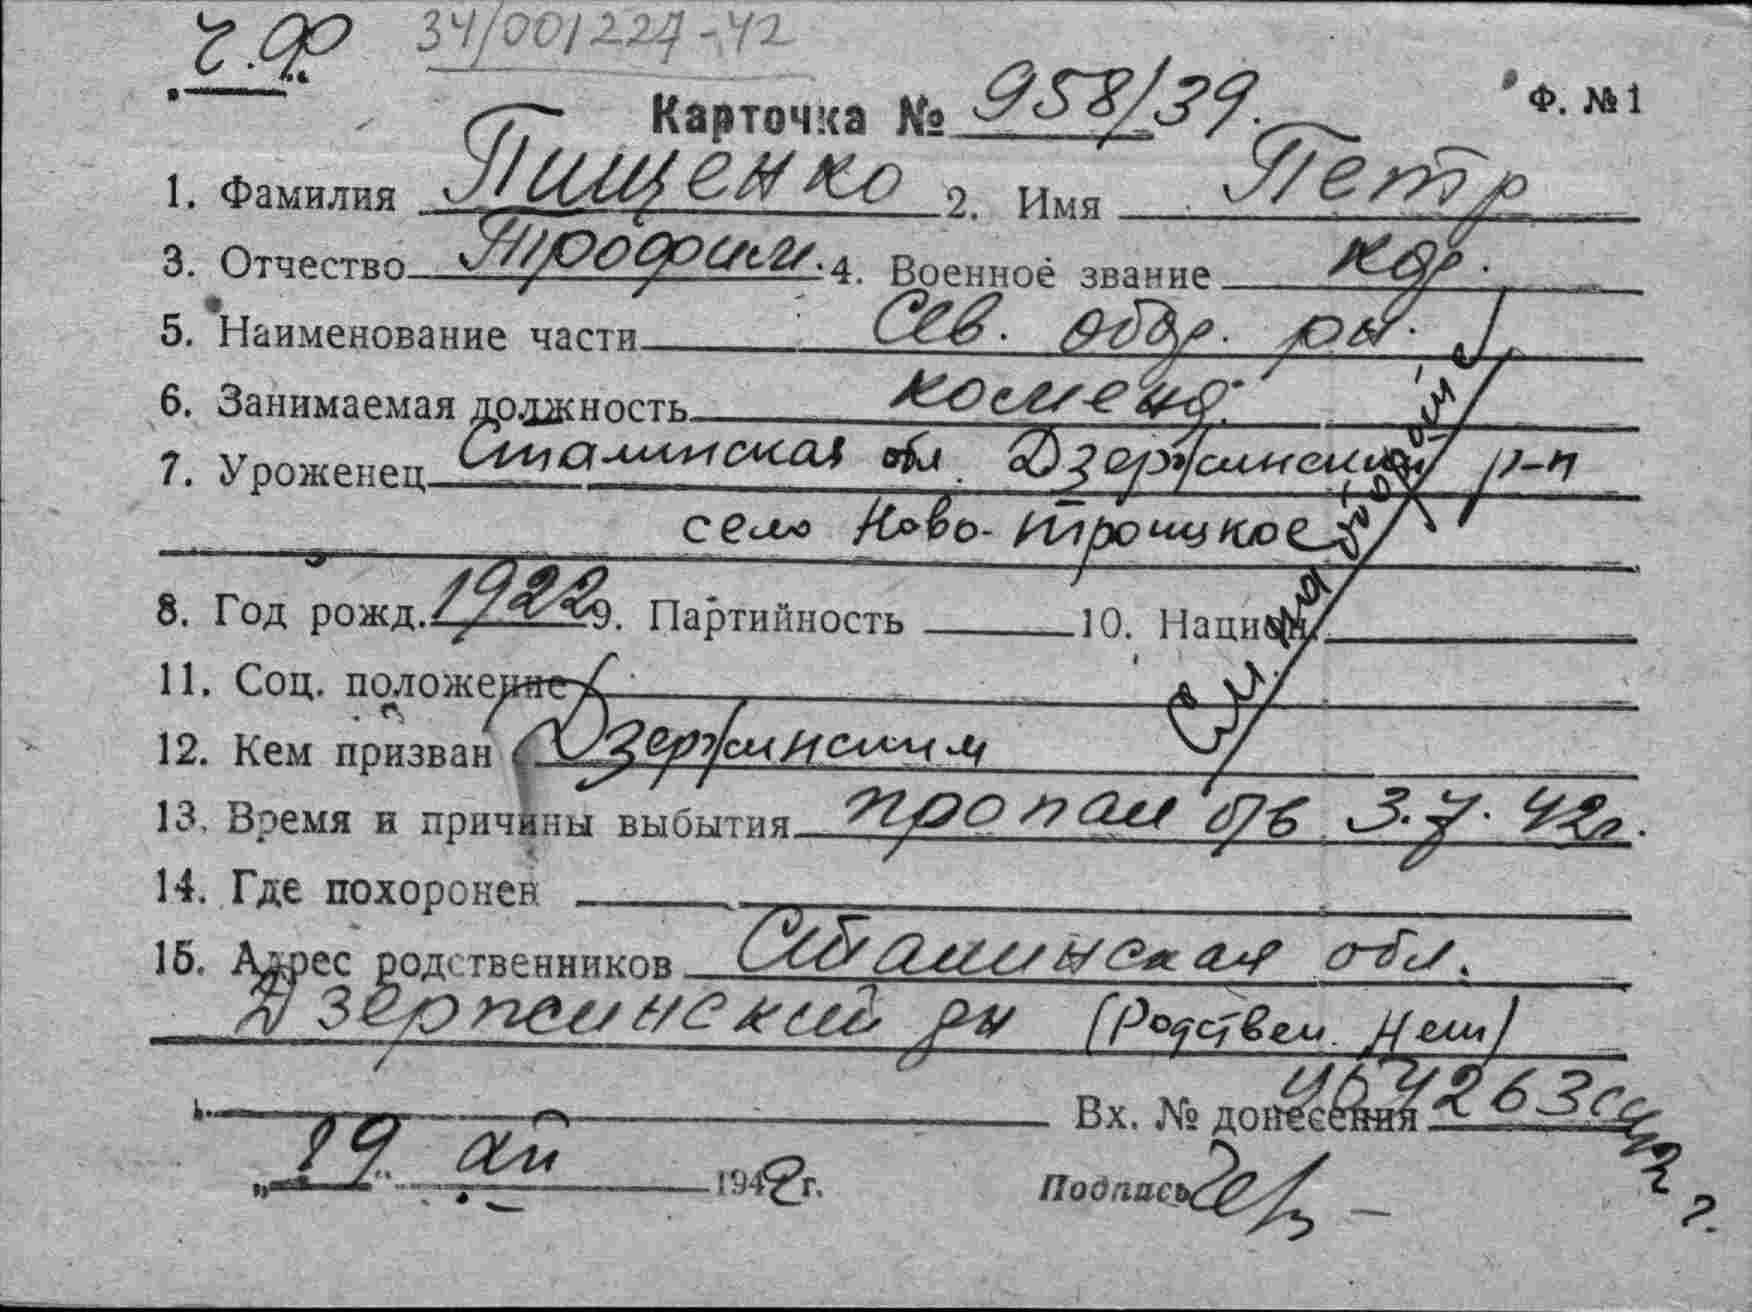 Ч.Ф 34/001227-42
Карточка № 958/39. Ф. №1
1. Фамилия Пищенко 2. Имя Петр
3. Отчество Трофим. 4. Военное звание кдр.
5. Наименование части Сев. обор. рн.
6. Занимаемая должность коменд.
7. Уроженец Сталинская обл. Дзержинский р-н
село Ново-Троицкое
См. на обороте
8. Год рожд. 1922 9. Партийность 10. Национ.
11. Соц. положение
12. Кем призван Дзержинским
13. Время и причины выбытия пропал б/в 3.7.42г.
14. Где похоронен
15. Адрес родственников Сталинская обл.
Дзержинский рн (Родствен. нет)
Вх. № донесения 
„19“ 1942г. Подпись